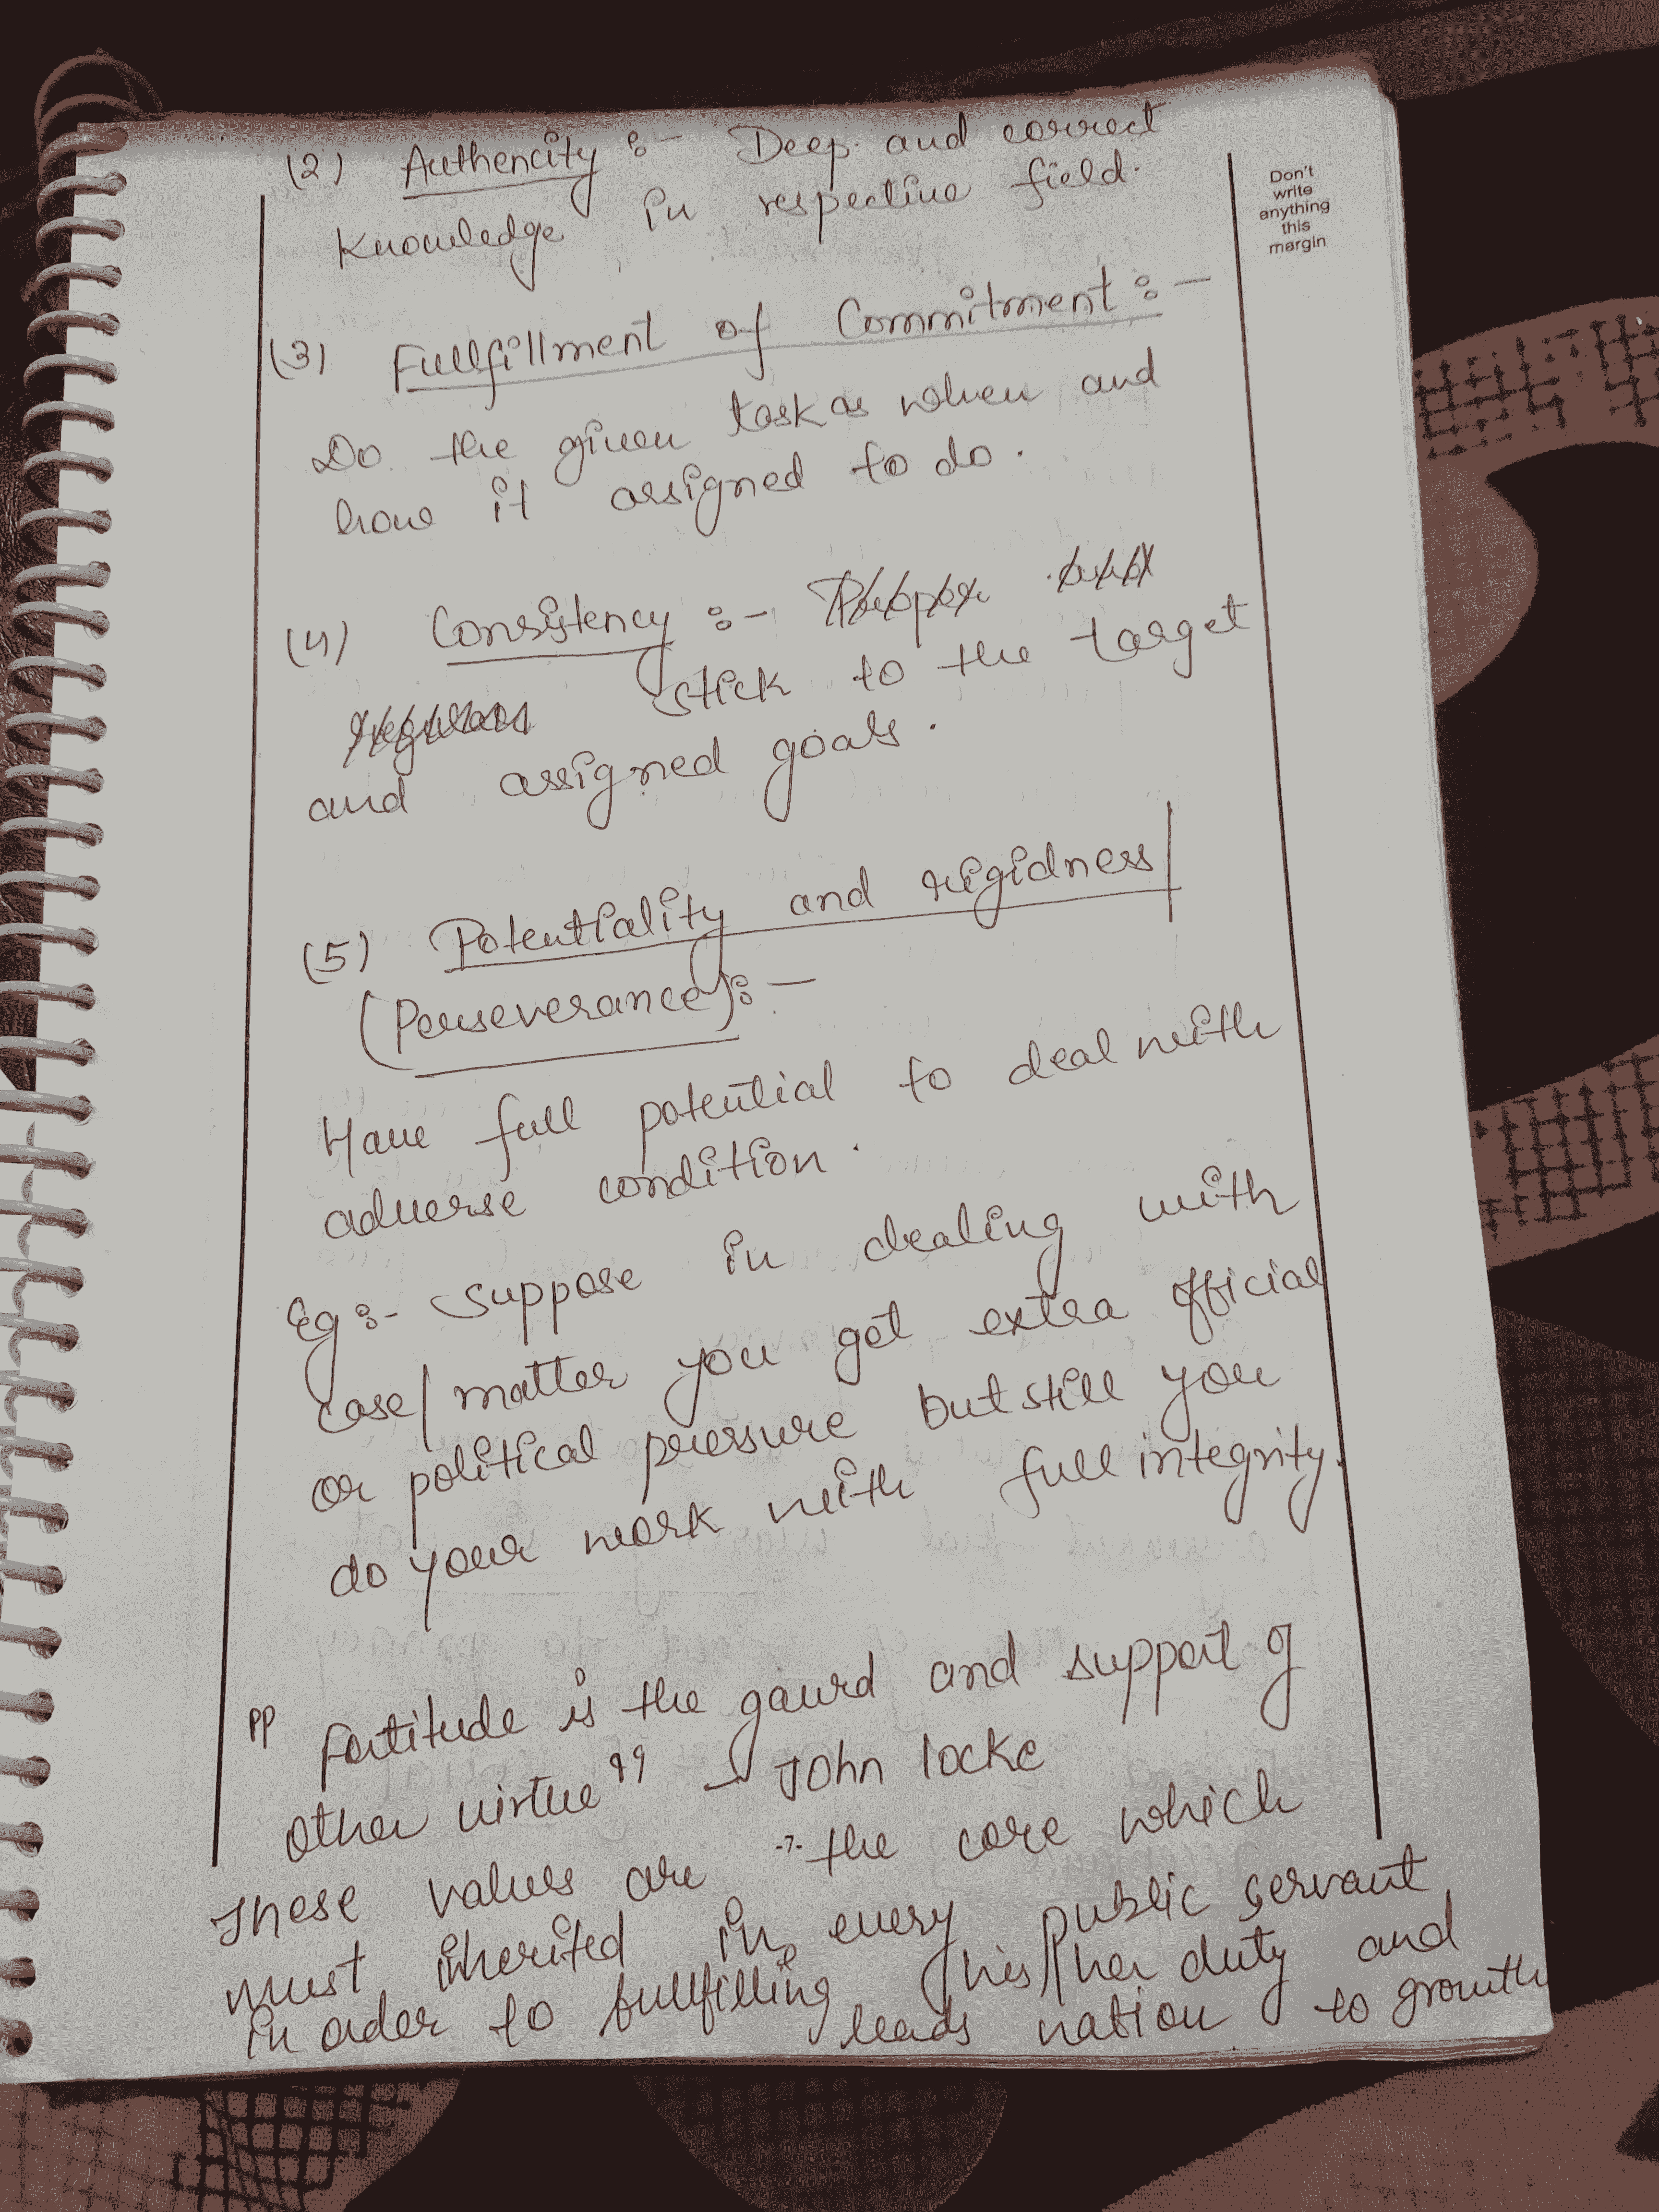 (2) Authencity :- Deep and correct
Knowledge in respective field.
Don't
write
anything
this
margin
(3) Fullfillment of Commitment :-
Do the given task as when and
how it assigned to do.
(4) Consistency :-
stick to the target
and assigned goals.
(5) Potentiality and rigidness/
(Perseverance) :-
Have full potential to deal with
adverse condition.
Eg :- Suppose in dealing with
case/matter you get extra official
or political pressure but still you
do your work with full integrity.
" Fortitude is the gaurd and support of
other virtue" - John locke
-7-
These values are the core which
must inherited in every public servant
in order to fullfilling his/her duty and
leads nation to growth